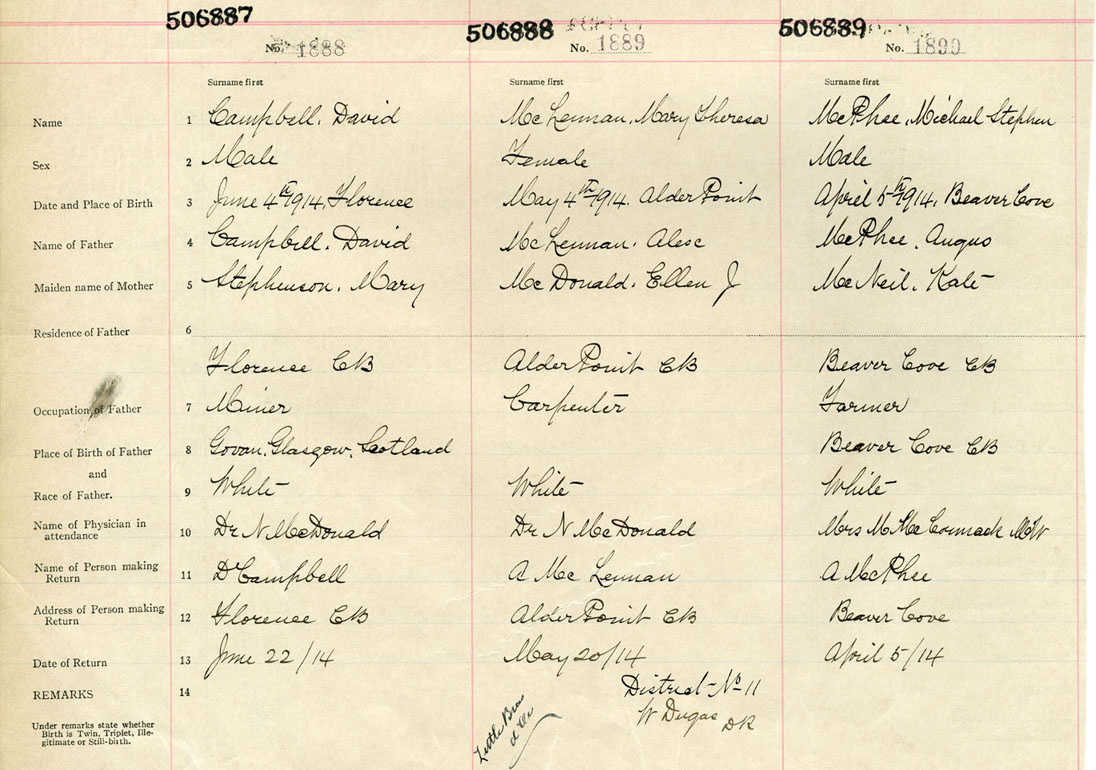 506887 506888 506889
No. 1888 No. 1889 No. 1890
Surname first Surname first Surname first
Name 1 Campbell, David McLennan, Mary Theresa McPhee, Michael Stephen
Sex 2 Male Female Male
Date and Place of Birth 3 June 4th 1914, Florence May 4th 1914, Alder Point April 5th 1914, Beaver Cove
Name of Father 4 Campbell, David McLennan, Alex McPhee, Angus
Maiden name of Mother 5 Stephenson, Mary McDonald, Ellen J McNeil, Kate
Residence of Father 6
Florence CB Alder Point CB Beaver Cove CB
Occupation of Father 7 Miner Carpenter Farmer
Place of Birth of Father 8 Govan, Glasgow, Scotland Beaver Cove CB
and
Race of Father. 9 White White White
Name of Physician in
attendance 10 Dr N McDonald Dr N McDonald Mrs M McCormack MW
Name of Person making
Return 11 D Campbell A McLennan A McPhee
Address of Person making
Return 12 Florence CB Alder Point CB Beaver Cove
Date of Return 13 June 22/14 May 20/14 April 5/14
REMARKS 14 District No 11
W Dugas DR
Little Bras
Under remarks state whether
Birth is Twin, Triplet, Ille-
gitimate or Still-birth.